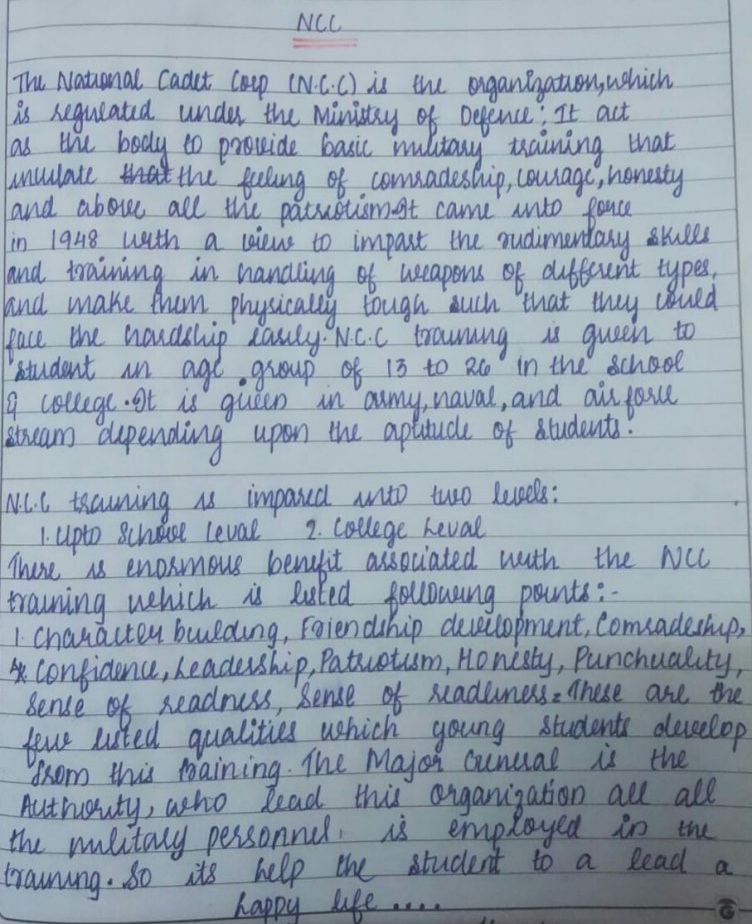 NCC
The National Cadet Corp (N.C.C) is the organization, which
is regulated under the Ministry of Defence; It act
as the body to provide basic military training that
inculate that the feeling of comradeship, courage, honesty
and above all the patriotism. It came into force
in 1948 with a view to impart the rudimentary skills
and training in handling of weapons of different types,
and make them physically tough such that they could
face the hardship easily. N.C.C training is given to
student in age group of 13 to 26 in the school
& college. It is given in army, naval, and air force
stream depending upon the aptitude of students.
N.C.C training is impared into two levels:
1. Upto School Leval 2. College Leval
There is enormous benefit associated with the NCC
training which is listed following points:-
1. Character building, Friendship development, Comradeship,
Confidence, Leadership, Patriotism, Honesty, Punchuality,
Sense of readness, Sense of readiness. These are the
few listed qualities which young students develop
from this training. The Major General is the
Authority, who lead this organization all all
the military personnel. is employed in the
training. So its help the student to a lead a
happy life ....